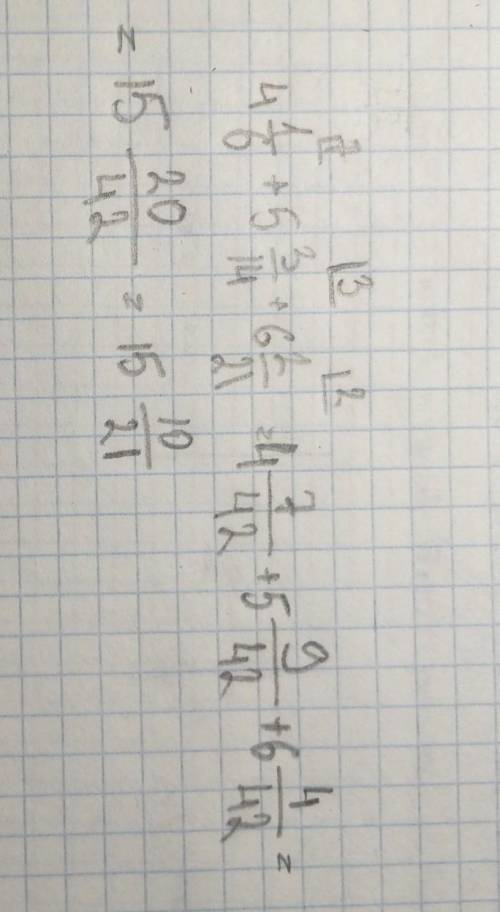 4 1/6 ⌊7 + 5 3/14 ⌊3 + 6 2/21 ⌊2 = 4 7/42 + 5 9/42 + 6 4/42 =
= 15 20/42 = 15 10/21